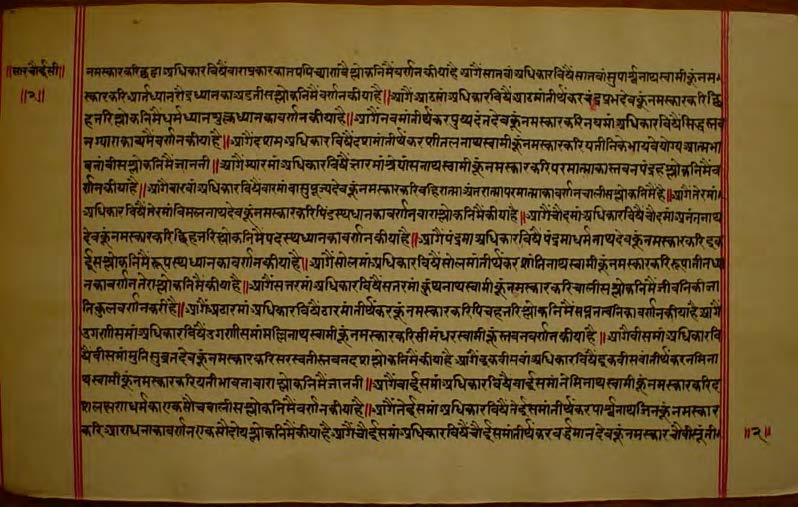 ॥सारचौईसी॥
॥२॥
नमस्कारकरि अधिकारविषैंबाराप्रकारकातप श्लोकनिमैंवर्णनकीयाहै आगैंसातवांअधिकारविषैंसातवांसुपार्श्वनाथस्वामीकूंनम
स्कारकरि ध्यानका श्लोकनिमैंवर्णनकीयाहै॥आगैंआठमांअधिकारविषैंआठमांतीर्थंकरचंद्रप्रभदेवकूंनमस्कारकरि
हतरिश्लोकनिमैंधर्मध्यानशुक्लध्यानकावर्णनकीयाहै॥आगैंनवमांतीर्थंकरपुष्पदंतदेवकूंनमस्कारकरिनवमांअधिकारविषैं
वर्णनकीयाहै॥आगैंदशमअधिकारविषैंदशमांतीर्थंकरशीतलनाथस्वामीकूंनमस्कारकरि
श्लोकनिमैंजाननी॥आगैंग्यारमांअधिकारविषैंग्यारमांश्रेयांसनाथस्वामीकूंनमस्कारकरिपरमात्माकास्तवनपंद्रहश्लोकनिमैंव
र्णनकीयाहै॥आगैंबारवांअधिकारविषैंबारमांवासुपूज्यदेवकूंनमस्कारकरिबहिरात्माअंतरात्मापरमात्माकावर्णनचालीसश्लोकनिमैंहै॥आगैंतेरमां
अधिकारविषैंतेरमांविमलनाथदेवकूंनमस्कारकरिपिंडस्थध्यानकावर्णनबाराश्लोकनिमैंकीयाहै॥आगैंचौदमांअधिकारविषैंचौदमांअनंतनाथ
देवकूंनमस्कारकरि श्लोकनिमैंपदस्थध्यानकावर्णनकीयाहै॥आगैंपंद्रमाअधिकारविषैंपंद्रमाधर्मनाथदेवकूंनमस्कारकरिइक
ईसश्लोकनिमैंरूपस्थध्यानकावर्णनकीयाहै॥आगैंसोलमांअधिकारविषैंसोलमांतीर्थंकरशांतिनाथस्वामीकूंनमस्कारकरिरूपातीतध्या
नकावर्णनतेराश्लोकनिमैंकीयाहै॥आगैंसत्तरमांअधिकारविषैंसत्तरमांकुंथनाथस्वामीकूंनमस्कारकरिचालीसश्लोकनिमैंजीवनिकीजा
तिकुलवर्णनकरीहै॥आगैंअठारमांअधिकारविषैंठारमांतीर्थंकरकूंनमस्कारकरिपिचहतरिश्लोकनिमैंसप्ततत्वनिकावर्णनकीयाहैआगैं
उगणीसमांअधिकारविषैंउगणीसमांमल्लिनाथस्वामीकूंनमस्कारकरिसीमंधरस्वामीकूंस्तवनवर्णनकीयाहै॥आगैंवीसमांअधिकारवि
षैंवीसमांमुनिसुव्रतदेवकूंनमस्कारकरिसरस्वतीस्तवनदशश्लोकनिमैंकीयाहै आगैंइकवीसवांअधिकारविषैंइकवीसवांतीर्थंकरनमिना
थस्वामीकूंनमस्कारकरियतीभावनाबाराश्लोकनिमैंजाननी॥आगैंबाईसमांअधिकारविषैंबाईसमांनेमिनाथस्वामीकूंनमस्कारकरिद
शलक्षणधर्मकाएकसौचवालीसश्लोकनिमैंवर्णनकीयाहै॥आगैंतेईसमांअधिकारविषैंतेईसमांतीर्थंकरपार्श्वनाथजिनकूंनमस्कार
करिआराधनाकावर्णनएकसौदोयश्लोकनिमैंकीयाहैआगैंचौईसमांअधिकारविषैंचौईसमांतीर्थंकरवर्द्धमानदेवकूंनमस्कारचौवीसूंती
॥२॥